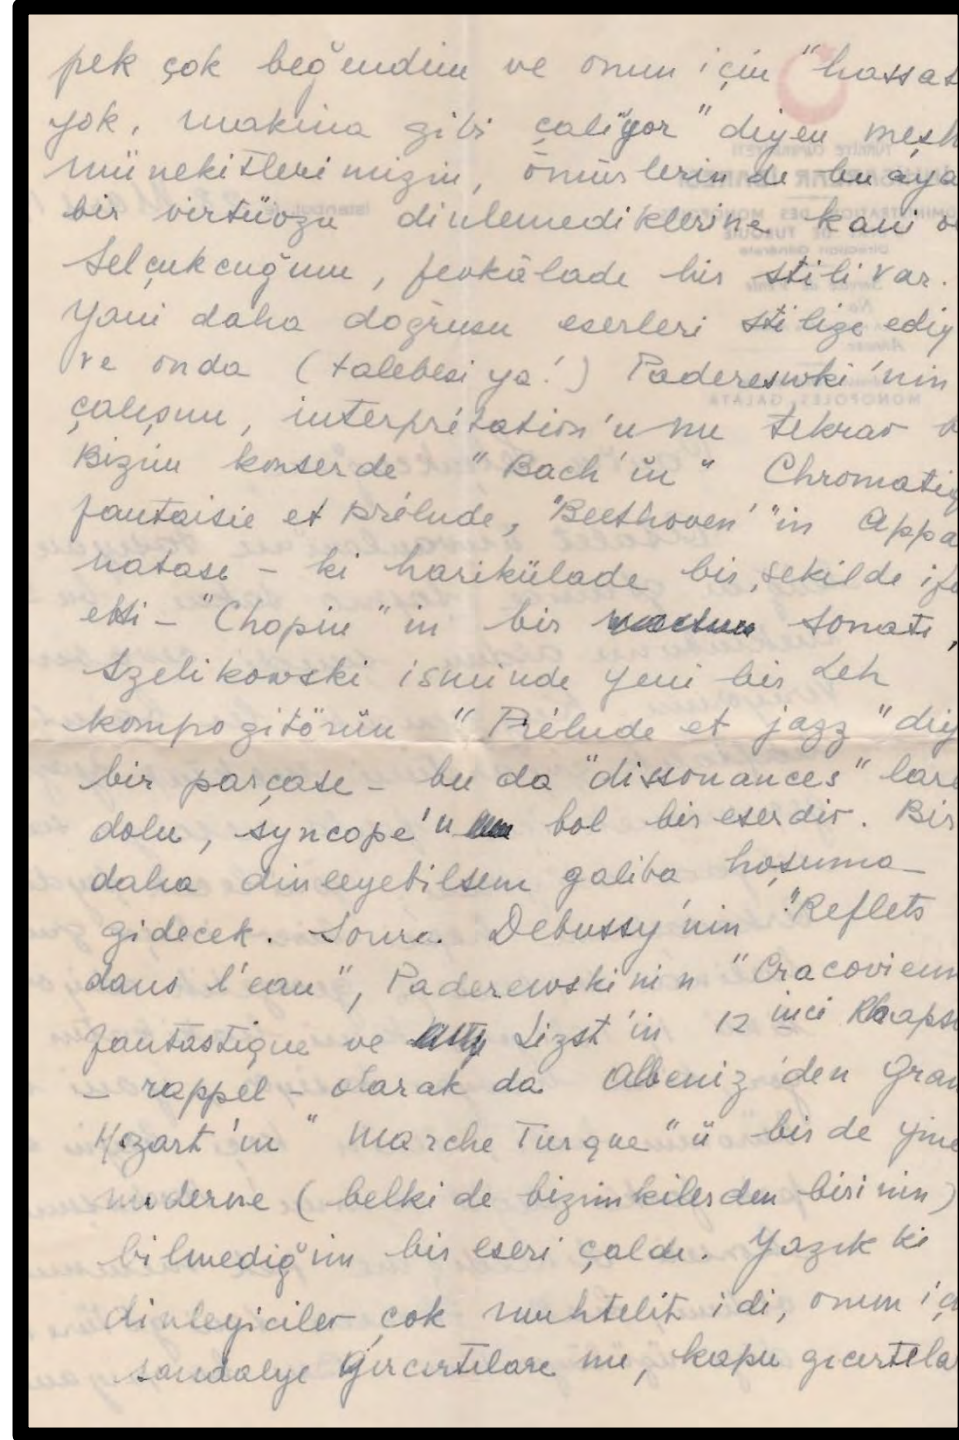 pek çok beğendim ve onun için "hassas
yok, makina gibi çalıyor" diyen meşh
münekitlerimizin, ömürlerinde bu aya
bir virtüozu dinlemediklerine kani o
Selçukcuğum, fevkâlade bir stili var.
Yani daha doğrusu eserleri stilize ediy
ve onda (talebesi ya!) Padereswki'nin
çalışını, interprétation'unu tekrar b
Bizim konserde "Bach'ın" Chromatiq
fantaisie et prélude, "Beethoven'"in Appa
natası - ki harikülade bir şekilde ifa
etti - "Chopin"in bir sonatı,
Szelikowski isminde yeni bir Leh
kompozitörün "Prélude et jazz" diy
bir parçası - bu da "dissonances" lar
dolu, syncope'u bol bir eserdir. Bir
daha dinleyebilsem galiba hoşuma
gidecek. Sonra Debussy'nin "Reflets
dans l'eau", Paderewski'nin "Cracovienn
fantastique ve Lizst'in 12 inci Rhapso
- rappel - olarak da Albeniz'den Gran
Mozart'ın "Marche Turque"ü bir de yine
moderne (belki de bizimkilerden birinin)
bilmediğim bir eseri çaldı. Yazık ki
dinleyiciler çok muhtelit idi, onun iç
sandalye gıcırtıları mı, kapu gıcırtıla